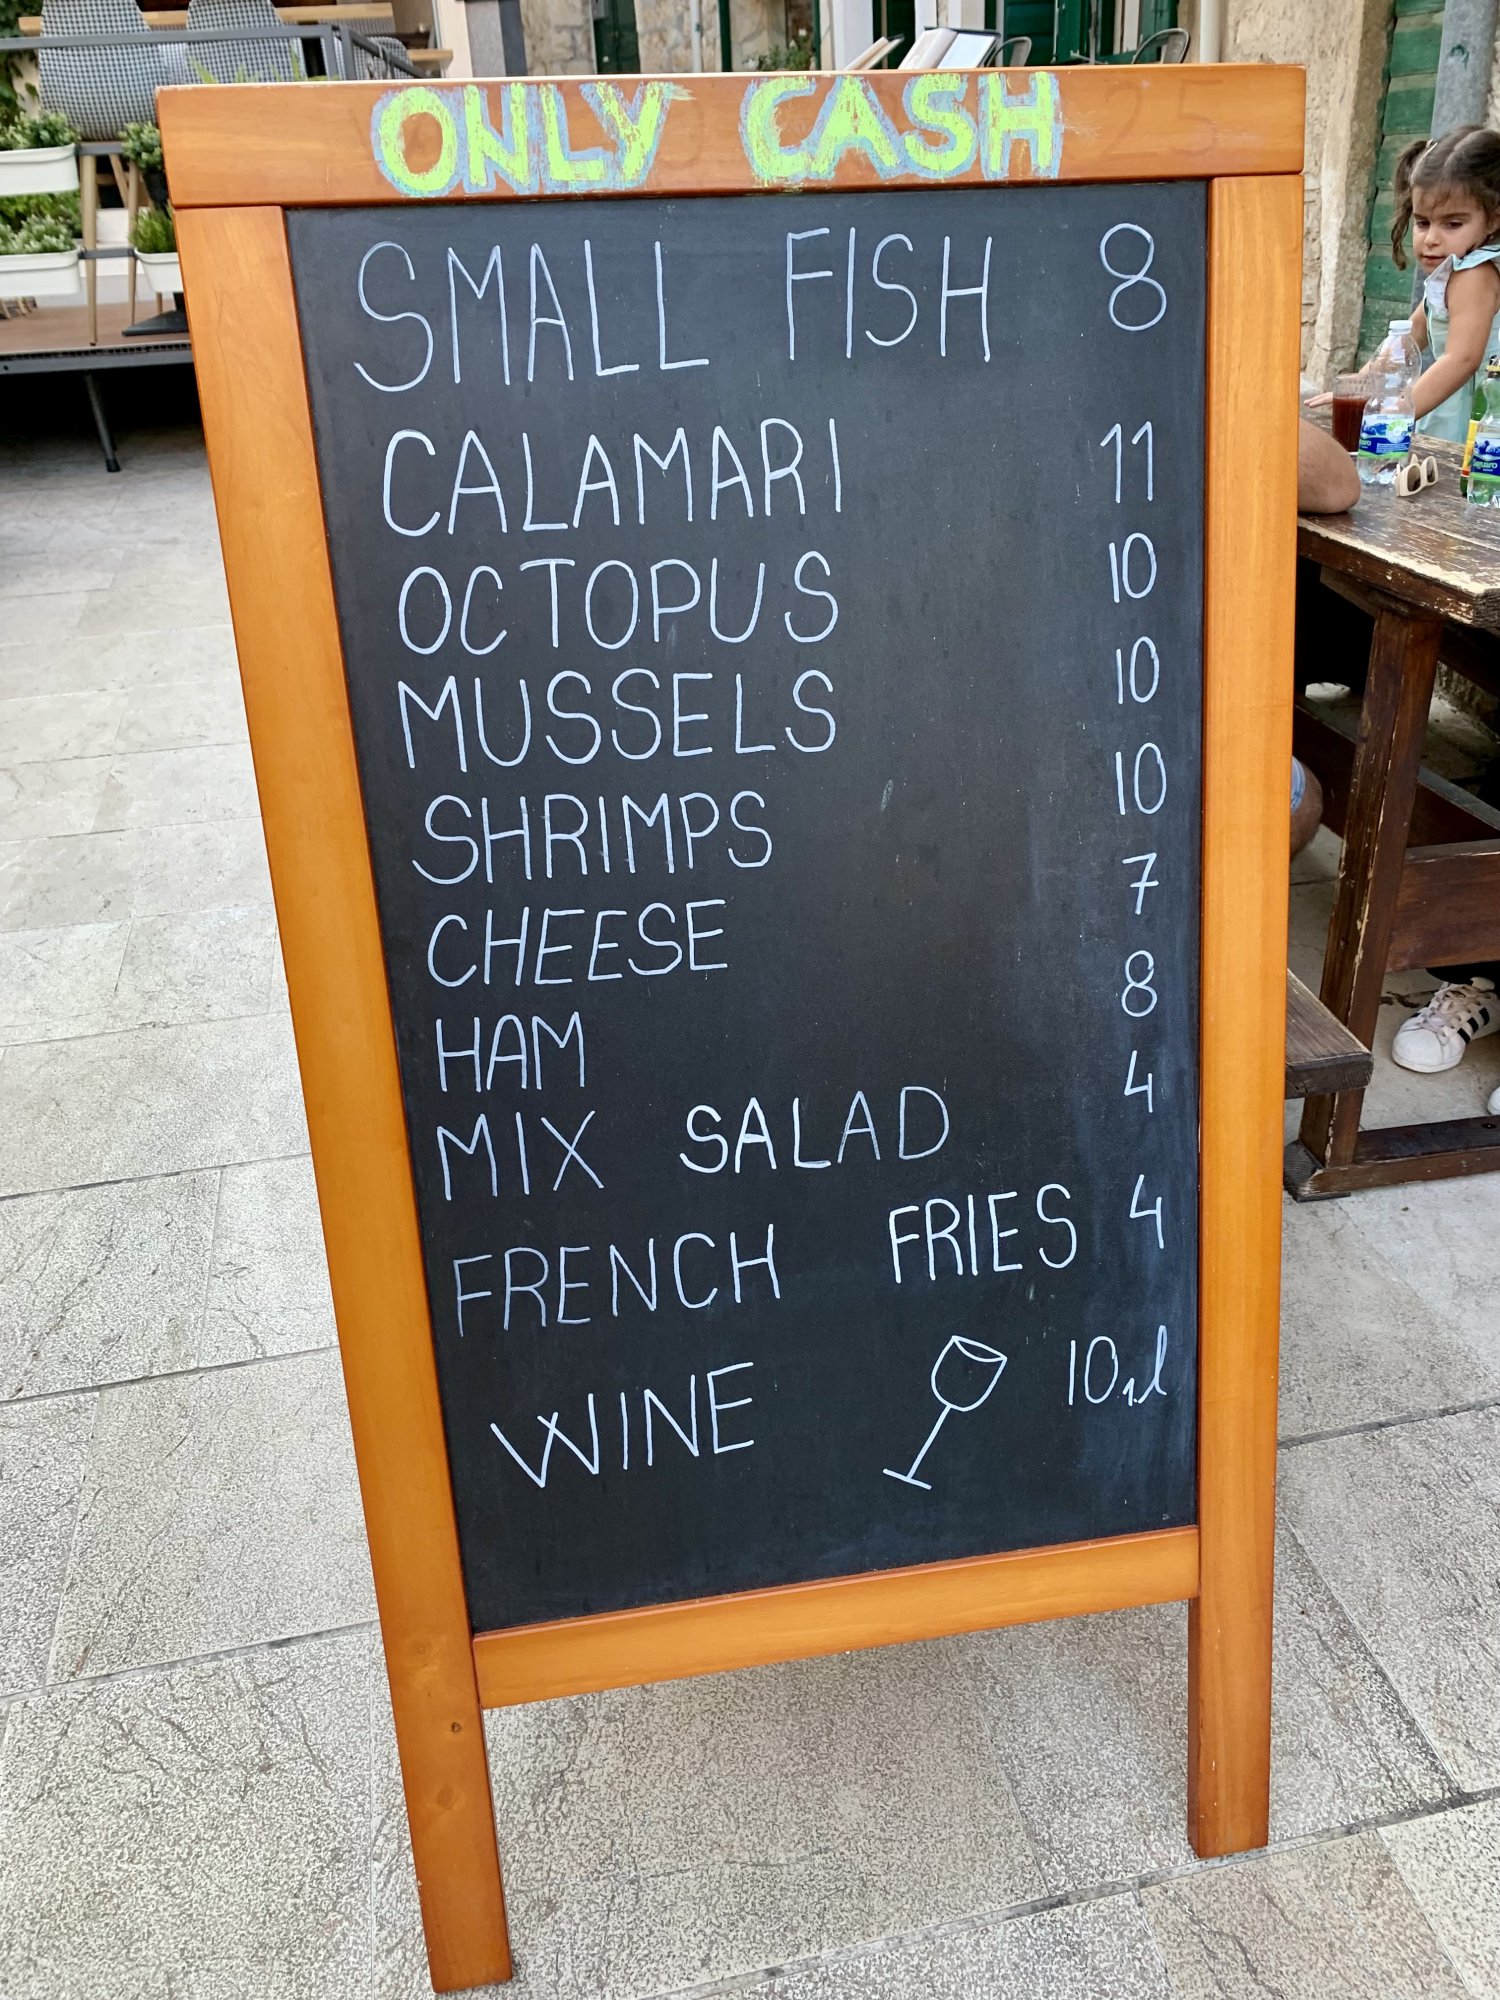 ONLY CASH
SMALL FISH 8
CALAMARI 11
OCTOPUS 10
MUSSELS 10
SHRIMPS 10
CHEESE 7
HAM 8
MIX SALAD 4
FRENCH FRIES 4
WINE 10,1l